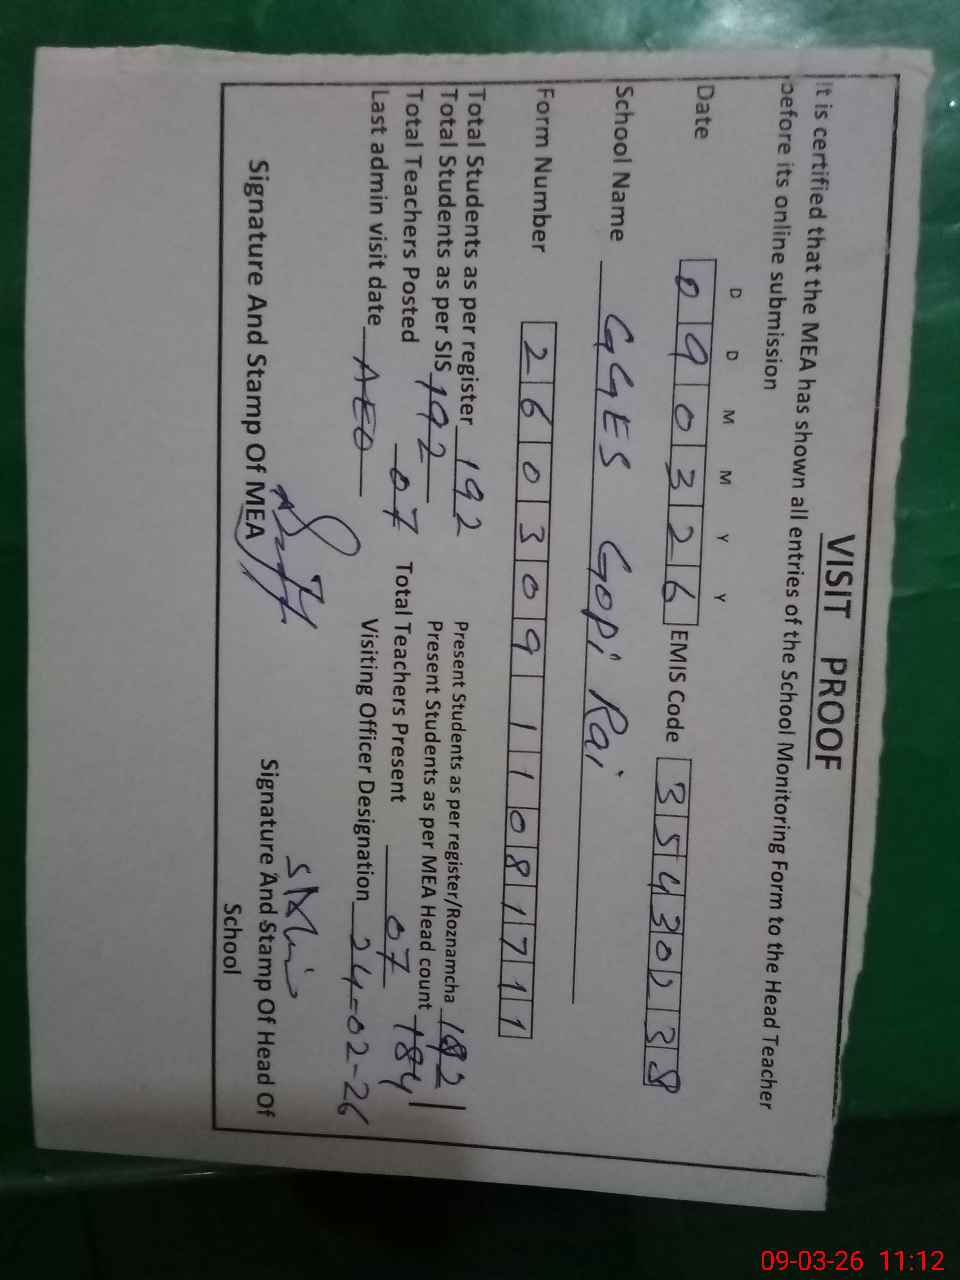 VISIT PROOF
It is certified that the MEA has shown all entries of the School Monitoring Form to the Head Teacher
before its online submission
D D M M Y Y
Date 090326 EMIS Code 35430238
School Name GGES Gopi Rai
Form Number 26030911081711
Total Students as per register 192 Present Students as per register/Roznamcha 192
Total Students as per SIS 192 Present Students as per MEA Head count 184
Total Teachers Posted 07 Total Teachers Present 07
Last admin visit date AEO Visiting Officer Designation 24-02-26
Signature And Stamp Of MEA Signature And Stamp Of Head Of
School
09-03-26 11:12